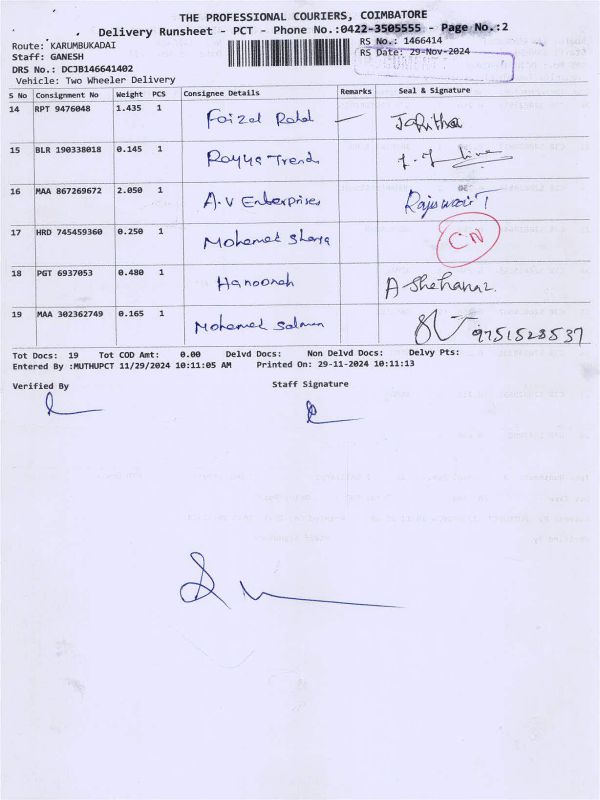 THE PROFESSIONAL COURIERS, COIMBATORE
Delivery Runsheet - PCT - Phone No.:0422-3505555 - Page No.:2
Route: KARUMBUKADAI RS No.: 1466414
Staff: GANESH RS Date: 29-Nov-2024
DRS No.: DCJB146641402
Vehicle: Two Wheeler Delivery
S No Consignment No Weight PCS Consignee Details Remarks Seal & Signature
14 RPT 9476048 1.435 1 Faizal
15 BLR 190338018 0.145 1 Royya Trends
16 MAA 867269672 2.050 1 A.V Enterprises
17 HRD 745459360 0.250 1 Mohamed CN
18 PGT 6937053 0.480 1 Hanoonah A Shehanaz.
19 MAA 302362749 0.165 1 Mohamed Salman 9751528537
Tot Docs: 19 Tot COD Amt: 0.00 Delvd Docs: Non Delvd Docs: Delvy Pts:
Entered By :MUTHUPCT 11/29/2024 10:11:05 AM Printed On: 29-11-2024 10:11:13
Verified By Staff Signature